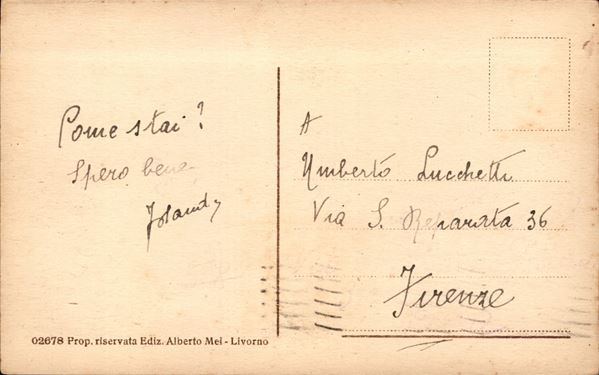 Come stai?
Spero bene
Jolanda
A
Umberto Lucchetti
Via S. Reparata 36
Firenze
02678 Prop. riservata Ediz. Alberto Mei - Livorno